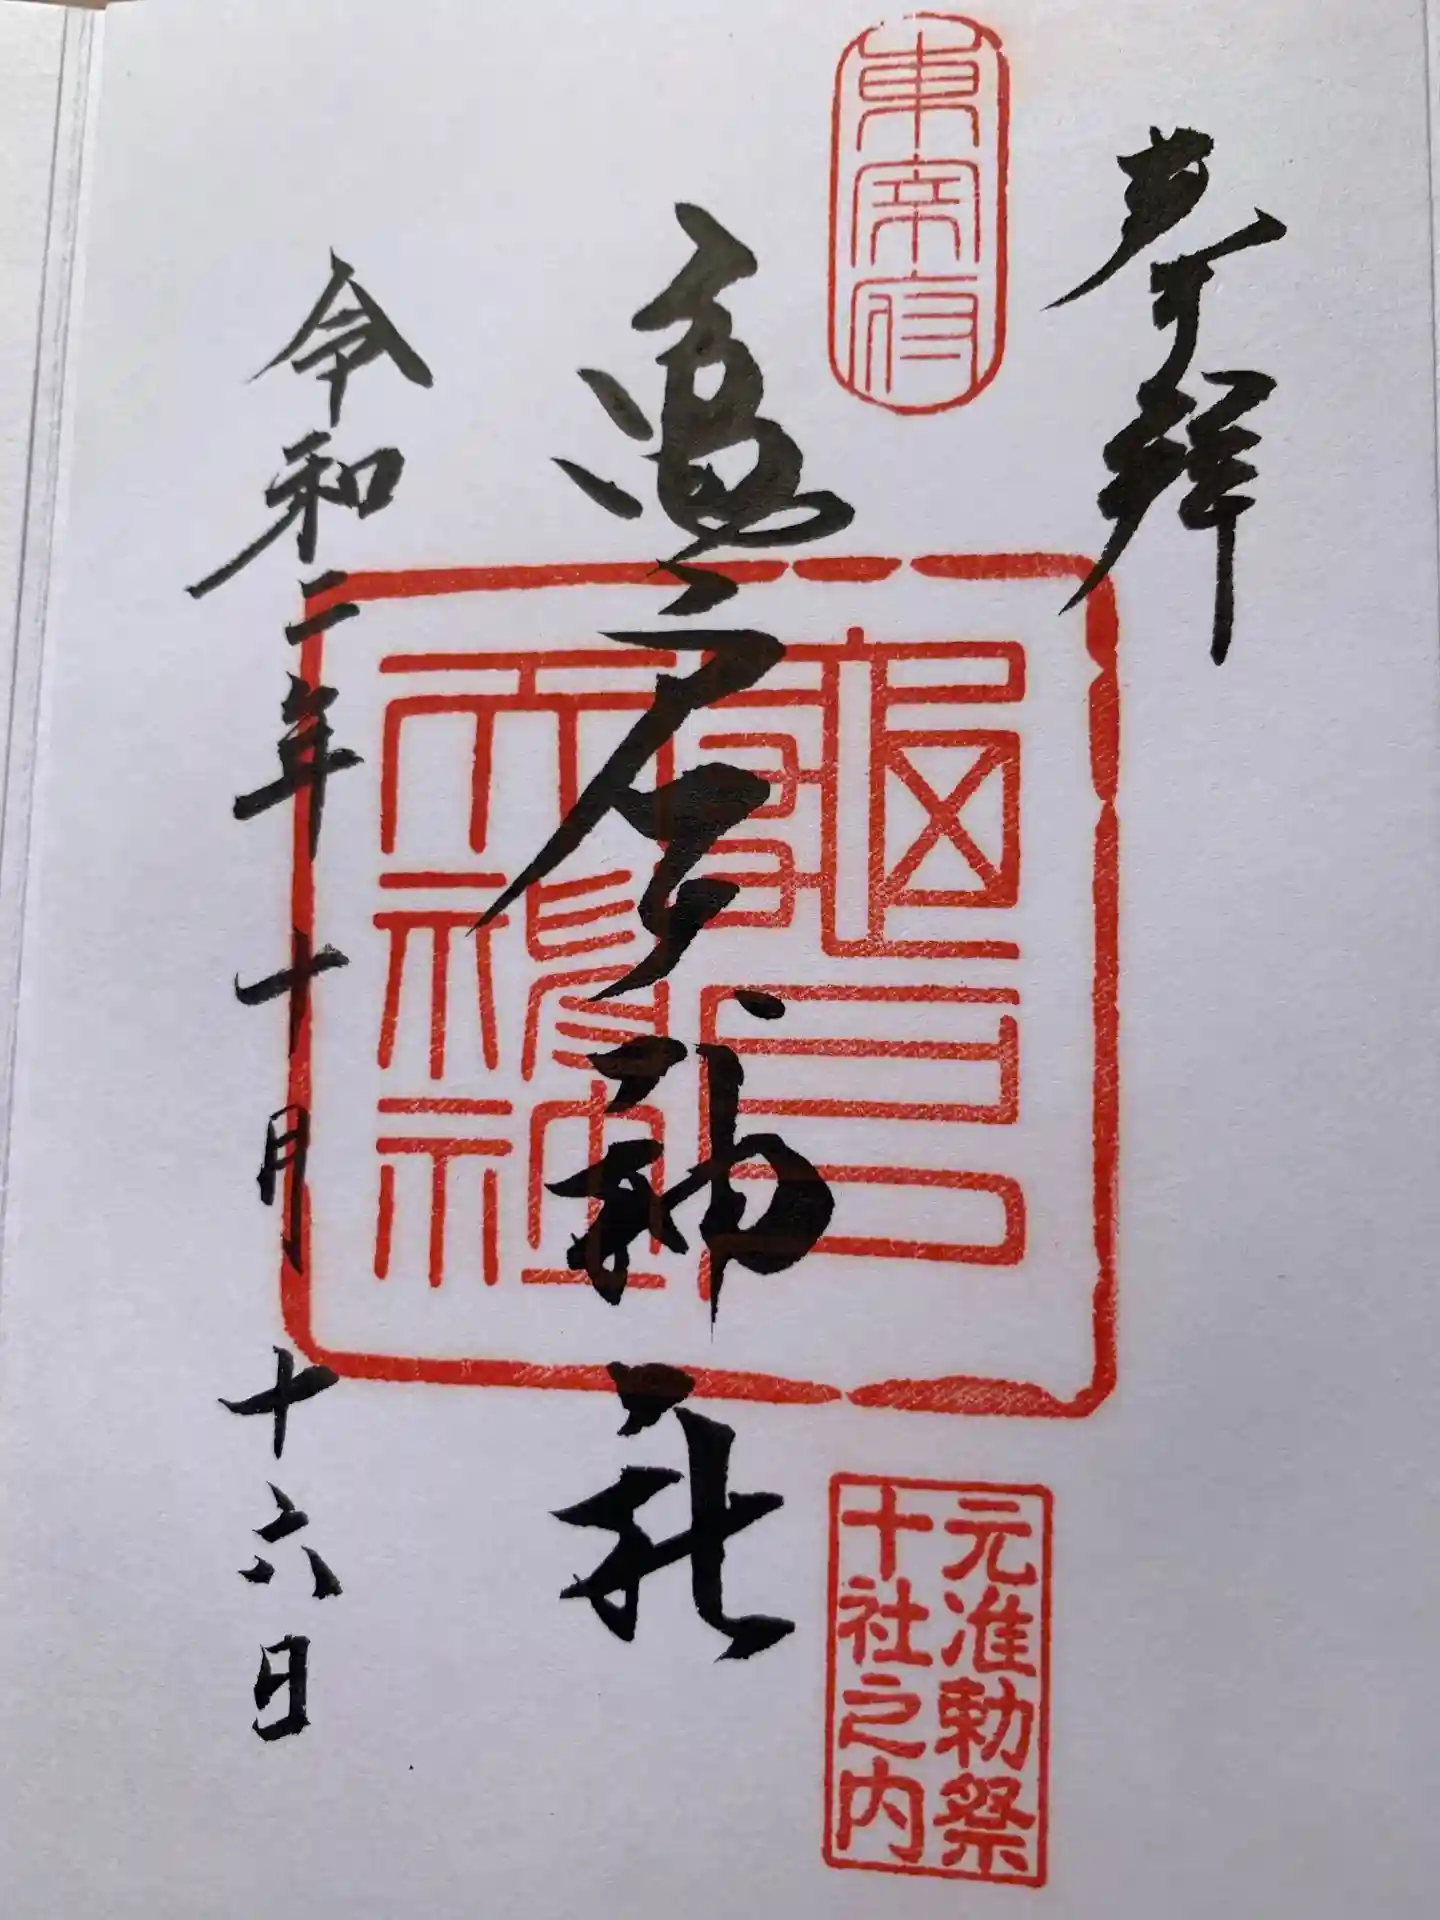 奉拝
東宰府
亀戸天神社
龜戸
天神社
元准勅祭
十社之内
令和二年十月十六日